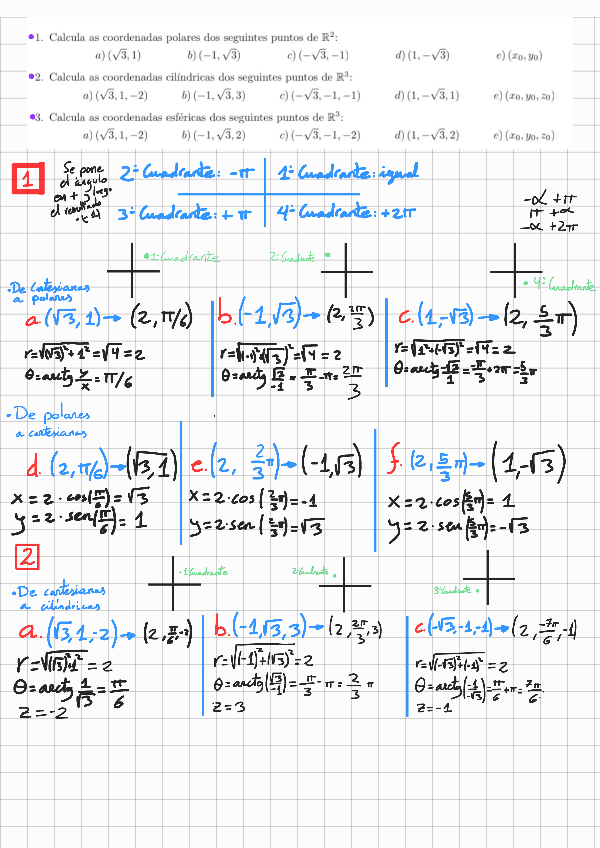 1. Calcula as coordenadas polares dos seguintes puntos de ℝ²:
a) (√3, 1) b) (−1, √3) c) (−√3, −1) d) (1, −√3) e) (x₀, y₀)
2. Calcula as coordenadas cilíndricas dos seguintes puntos de ℝ³:
a) (√3, 1, −2) b) (−1, √3, 3) c) (−√3, −1, −1) d) (1, −√3, 1) e) (x₀, y₀, z₀)
3. Calcula as coordenadas esféricas dos seguintes puntos de ℝ³:
a) (√3, 1, −2) b) (−1, √3, 2) c) (−√3, −1, −2) d) (1, −√3, 2) e) (x₀, y₀, z₀)
1
Se pone
el ángulo
en + y luego
el resultado
2º Cuadrante: -π
1º Cuadrante: igual
3º Cuadrante: +π
4º Cuadrante: +2π
-α +π
π +α
-α +2π
1º Cuadrante
2º Cuadrante
4º Cuadrante
• De cartesianas
a polares
a. (√3, 1) → (2, π/6)
r=√(√3)²+1² = √4 = 2
θ = arctg y/x = π/6
b. (-1, √3) → (2, 2π/3)
r=√(-1)²+(√3)² = √4 = 2
θ = arctg √3/-1 = π/3 -π = 2π/3
c. (1, -√3) → (2, 5/3 π)
r=√1²+(-√3)² = √4 = 2
θ = arctg -√3/1 = -π/3 +2π = 5/3 π
• De polares
a cartesianas
d. (2, π/6) → (√3, 1)
x = 2·cos(π/6) = √3
y = 2·sen(π/6) = 1
e. (2, 2/3 π) → (-1, √3)
x = 2·cos(2/3 π) = -1
y = 2·sen(2/3 π) = √3
f. (2, 5/3 π) → (1, -√3)
x = 2·cos(5/3 π) = 1
y = 2·sen(5/3 π) = -√3
2
1º Cuadrante
2º Cuadrante
3º Cuadrante
• De cartesianas
a cilíndricas
a. (√3, 1, -2) → (2, π/6, -2)
r = √(√3)²+1² = 2
θ = arctg 1/√3 = π/6
z = -2
b. (-1, √3, 3) → (2, 2π/3, 3)
r = √(-1)²+(√3)² = 2
θ = arctg(√3/-1) = -π/3 -π = 2/3 π
z = 3
c. (-√3, -1, -1) → (2, -7π/6, -1)
r = √(-√3)²+(-1)² = 2
θ = arctg(-1/-√3) = π/6 +π = 7π/6
z = -1